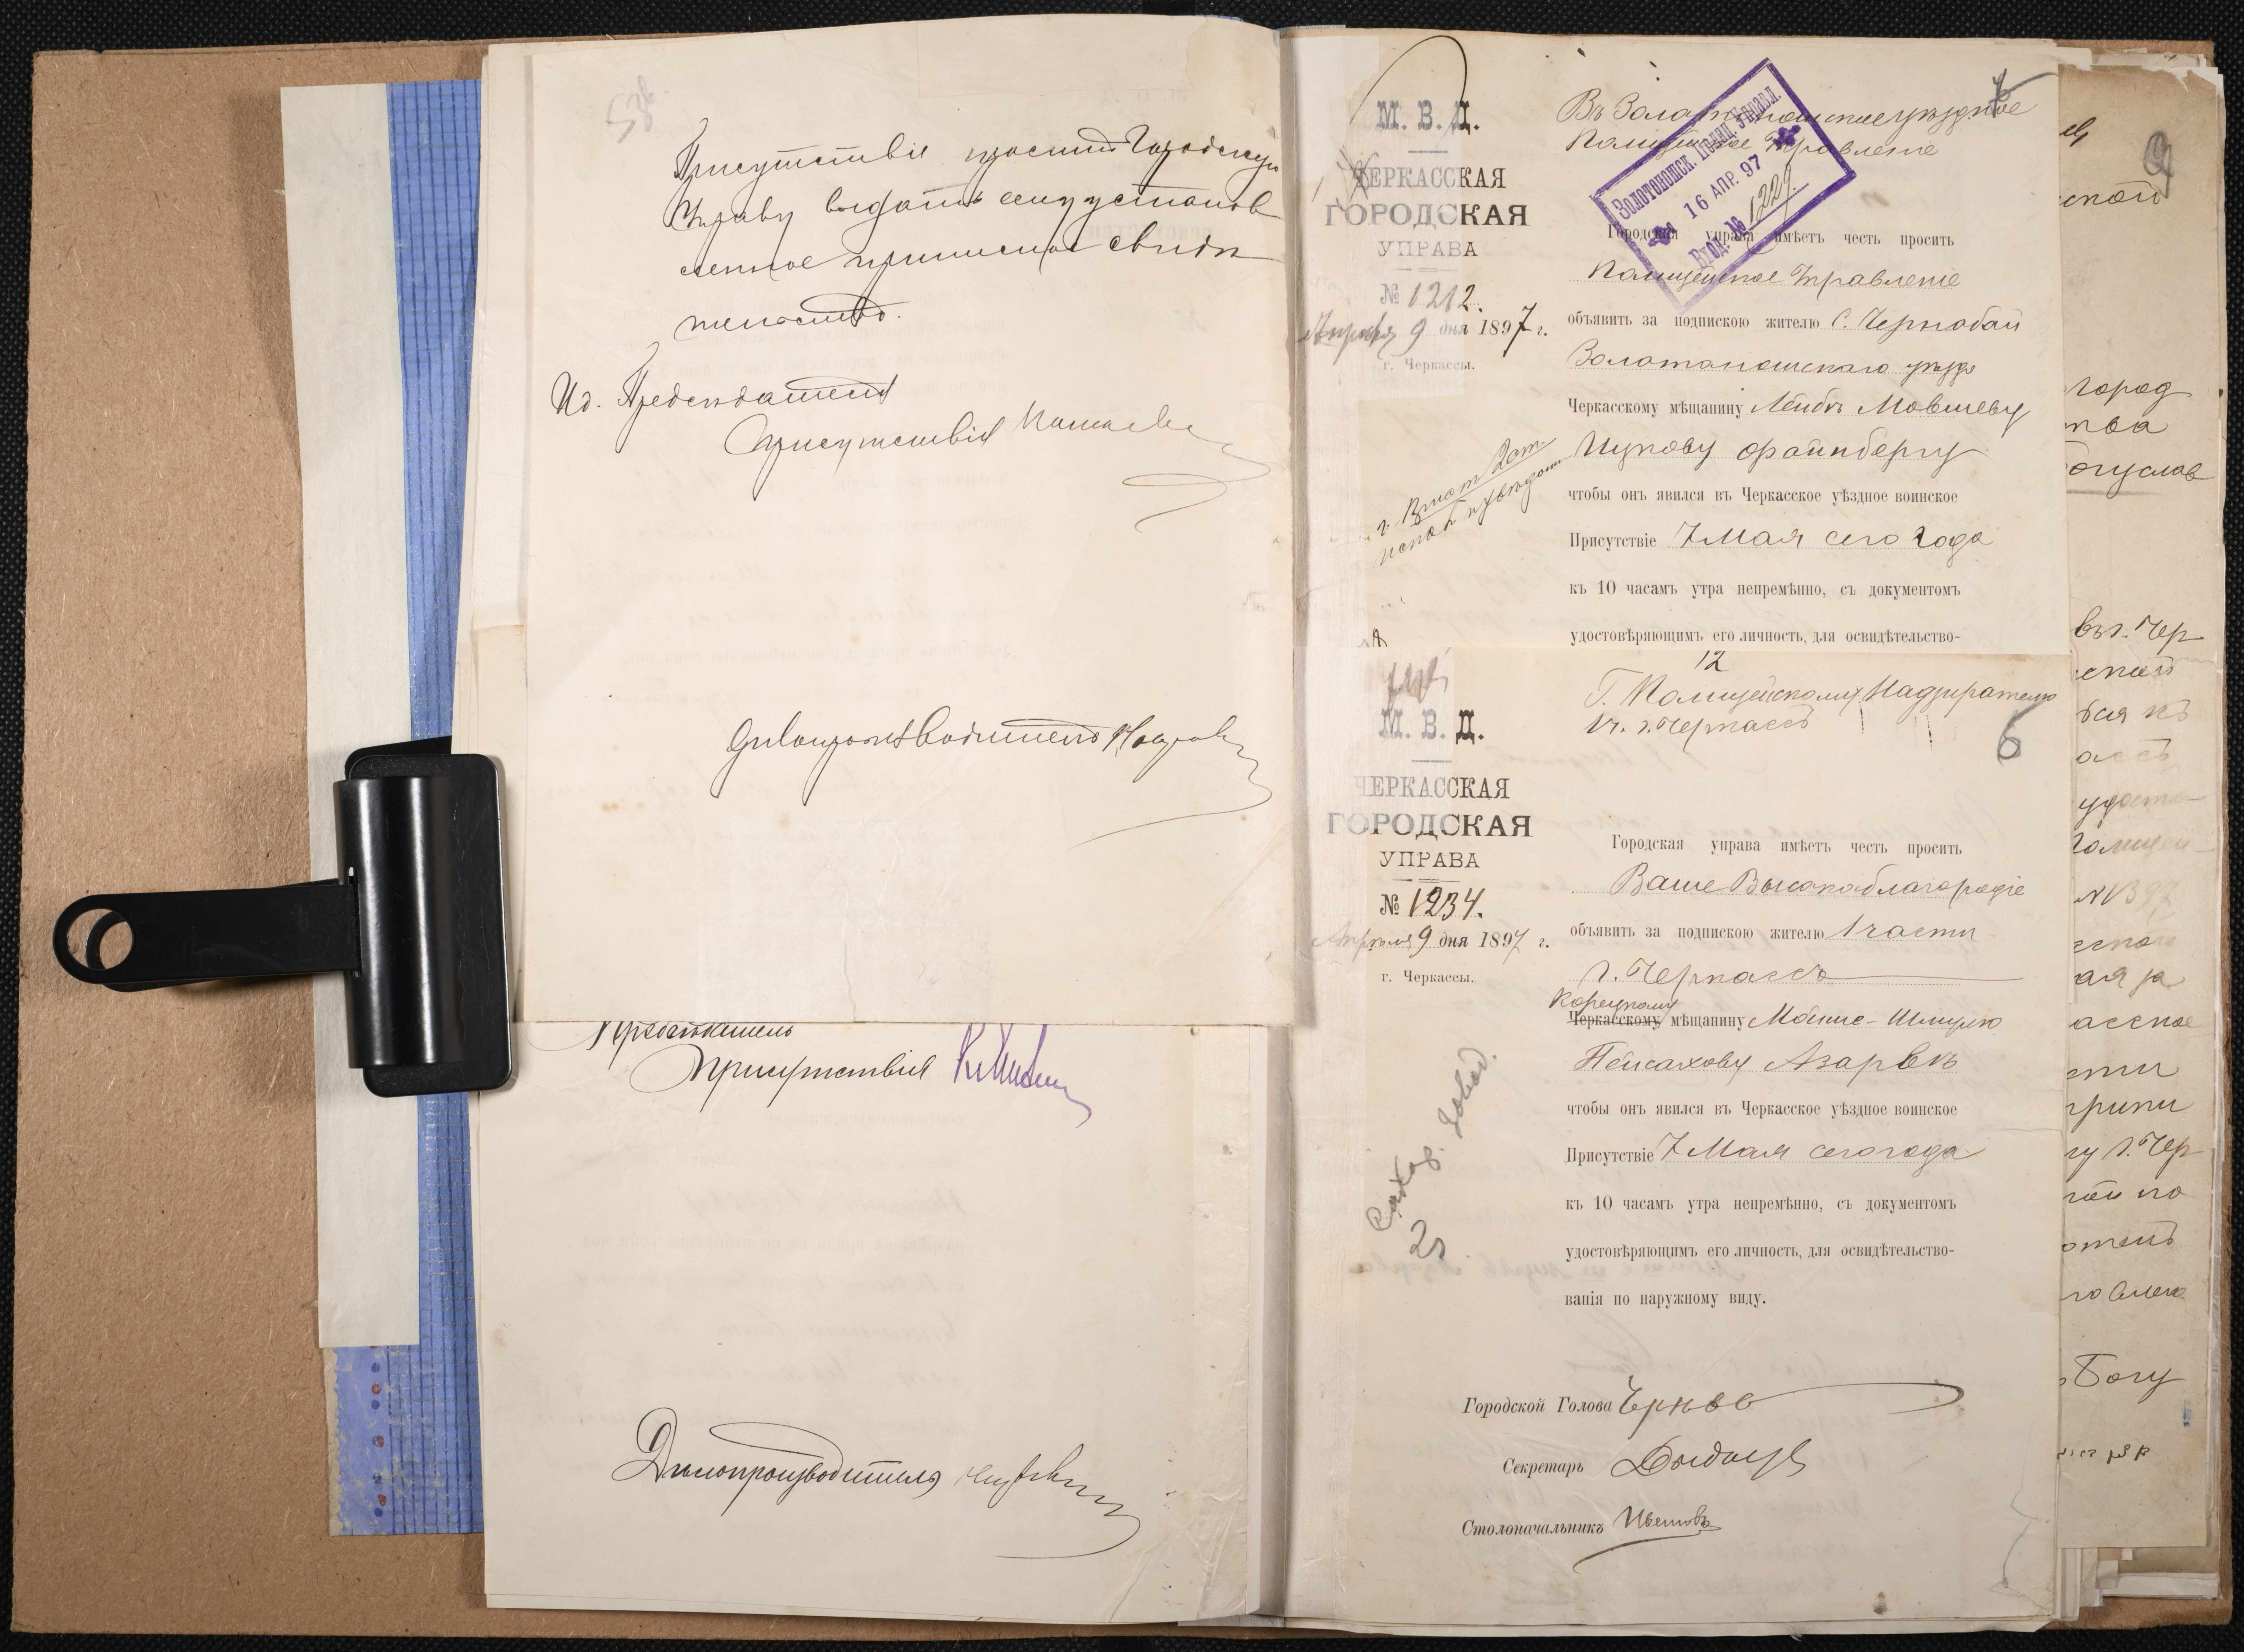 538
Присутствіе проситъ Городскую
Управу выдать сему установ
ленное приписное свидѣ
тельство.
Ид. Предсѣдателя
Присутствія
Дѣлопроизводитель
Предсѣдатель
Присутствія
Дѣлопроизводитель
М. В. Д.
ЧЕРКАССКАЯ
ГОРОДСКАЯ
УПРАВА
№ 1212.
Апрѣля 9 дня 1897 г.
г. Черкассы.
Въ Золотоношское уѣздное
Полицейское Управленіе
Золотоношск. Полиц. Управл.
16 АПР. 97
Вход. № 1229
Городская управа имѣетъ честь просить
Полицейское Управленіе
объявить за подпискою жителю С. Чернобай
Золотоношскаго уѣзда
Черкасскому мѣщанину Лейбѣ Мовшеву
Ицкову Файнбергу
чтобы онъ явился въ Черкасское уѣздное воинское
Присутствіе 7 Мая сего года
къ 10 часамъ утра непремѣнно, съ документомъ
удостовѣряющимъ его личность, для освидѣтельство-
М. В. Д.
ЧЕРКАССКАЯ
ГОРОДСКАЯ
УПРАВА
№ 1234.
Апрѣля 9 дня 1897 г.
г. Черкассы.
Сахар. завод.
12
Г. Полицейскому Надзирателю
1 ч. г. Черкассъ
6
Городская управа имѣетъ честь просить
Ваше Высокоблагородіе
объявить за подпискою жителю 1 части
г. Черкассъ
Корецкому
Черкасскому мѣщанину Мойше-Шмулю
Пейсахову Азарвѣ
чтобы онъ явился въ Черкасское уѣздное воинское
Присутствіе 7 Мая сего года
къ 10 часамъ утра непремѣнно, съ документомъ
удостовѣряющимъ его личность, для освидѣтельство-
ванія по наружному виду.
Городской Голова
Секретарь
Столоначальникъ
9
ской
город
тва
огуслав
въ г. Чер
ской
ассъ
удосто
Полицей
№ 1397
ская
ая за
асское
сти
г. Чер
Богу